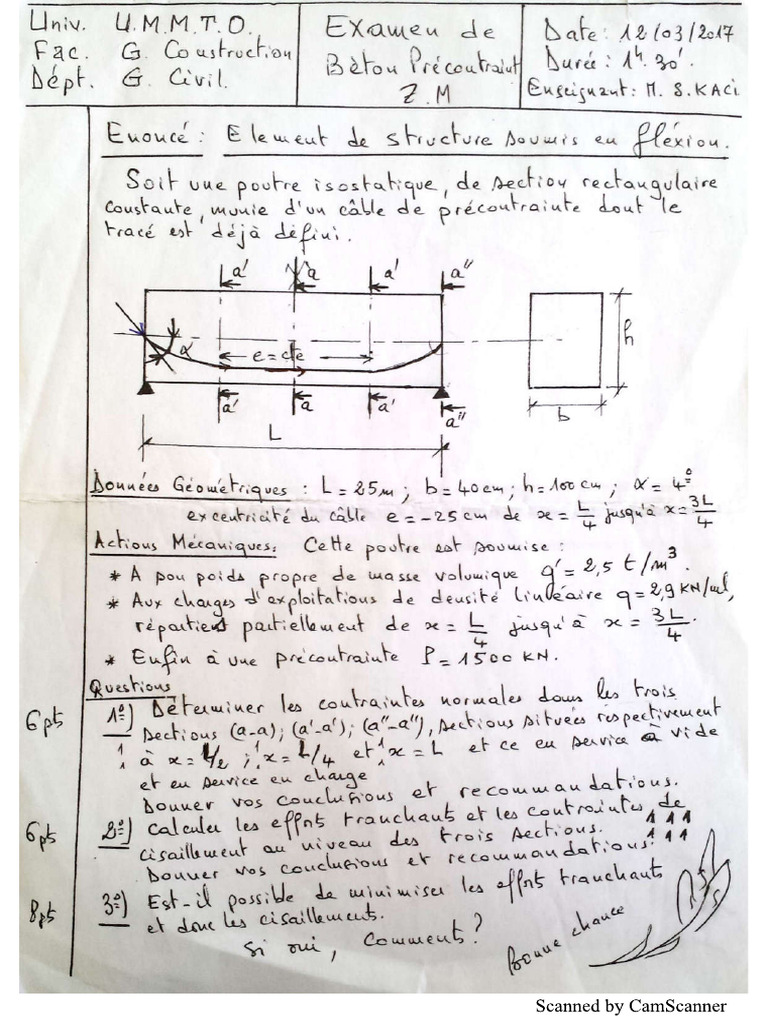 Univ. U.M.M.T.O.
Fac. G. Construction
Dépt. G. Civil.
Examen de
Bèton Précontraint
Z.M
Date: 12/03/2017
Durée: 1h.30'.
Enseignant: M. S.KACi.
Enoncé: Element de structure soumis en fléxion.
Soit une poutre isostatique, de section rectangulaire
constante, munie d'un câble de précontrainte dont le
tracé est déjà défini.
a' a a' a"
α e=cte
a' a a' a"
L
h
b
Données Géométriques: L=25m; b=40cm; h=100cm; α=4°
excentricité du câble e=-25cm de x=L/4 jusqu'à x=3L/4
Actions Mécaniques: Cette poutre est soumise:
* A pou poids propre de masse volumique g'=2,5 t/m³
* Aux charges d'exploitations de densité linéaire q=2,9KN/ml,
répartient partiellement de x=L/4 jusqu'à x=3L/4.
* Enfin à une précontrainte P=1500KN.
Questions
6pts 1°) Déterminer les contraintes normales dans les trois
sections (a-a); (a'-a'); (a"-a"), sections situées respectivement
à x=L/2; x=L/4 et x=L et ce en service à vide
et en service en charge
Donner vos conclusions et recommandations.
6pts 2°) Calculer les effort tranchants et les contraintes de
cisaillement au niveau des trois sections.
Donner vos conclusions et recommandations.
8pts 3°) Est-il possible de minimiser les effort tranchants
et donc les cisaillements.
Si oui, comment?
Bonne chance
Scanned by CamScanner